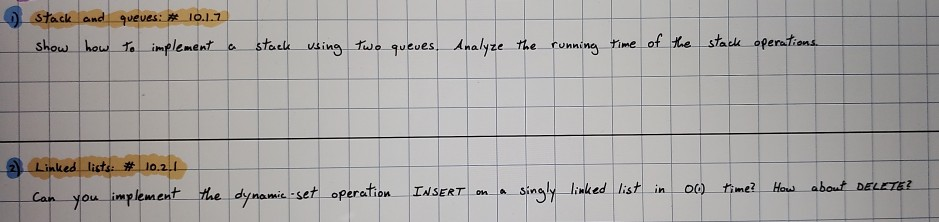 1) Stack and queues: # 10.1.7
Show how to implement a stack using two queues. Analyze the running time of the stack operations.
2) Linked lists: # 10.2.1
Can you implement the dynamic-set operation INSERT on a singly linked list in O(1) time? How about DELETE?